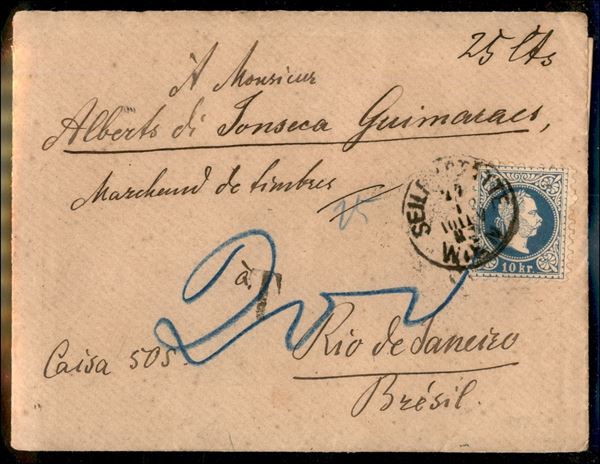 25 Cts
À Monsieur
Alberto di Fonseca Guimaraes,
Marchand de timbres
10 kr.
à
T
Rio de Janeiro
Caisa 505
Brésil.